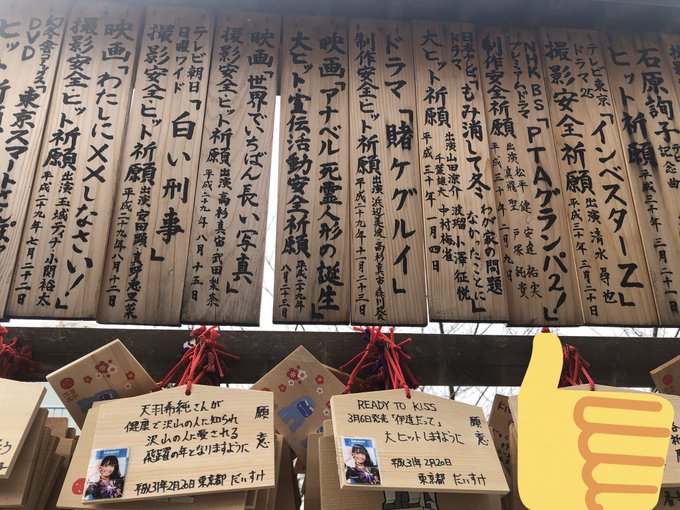 石原詢子
記念曲
ヒット祈願
テレビ東京
ドラマ25
「インベスターZ」
撮影安全祈願 出演 清水尋也
NHK BS
プレミアムドラマ
「PTAグランパ2!」
制作安全祈願 出演 松平 健 安達祐実
真飛 聖 戸塚純貴
日本テレビ
ドラマ
「もみ消して冬 わが家の問題
なかったことに」
大ヒット祈願 出演 山田涼介 波瑠 小澤征悦
千葉雄大 中村梅雀
平成三十年一月四日
ドラマ「賭ケグルイ」
制作安全ヒット祈願 出演 浜辺美波 高杉真宙 森川葵
平成二十九年十一月二十三日
映画「アナベル 死霊人形の誕生」
大ヒット宣伝活動安全祈願
平成二十九年八月二十三日
映画「世界でいちばん長い写真」
撮影安全ヒット祈願 出演 高杉真宙 武田梨奈
平成二十九年八月十五日
テレビ朝日
日曜ワイド
「白い刑事」
撮影安全ヒット祈願 出演 安田顕 真野恵里菜
平成二十九年八月十二日
映画「わたしに××しなさい!」
撮影安全ヒット祈願 出演 玉城ティナ 小関裕太
平成二十九年七月二十二日
DVD
「東京スマート
ヒット祈願
天羽希純さんが
健康で沢山の人に知られ
沢山の人に愛される
飛躍の年となりますように
平成31年2月20日 東京都 だいすけ
願意
READY TO KISS
3月6日発売「伊達だって」
大ヒットしますように
平成31年2月20日
東京都 だいすけ
願意